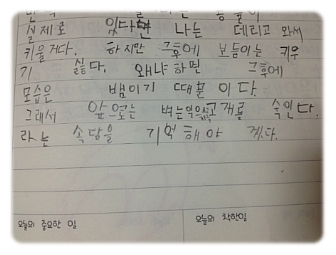 실제로 있다면 나는 데리고 와서
키울거다. 하지만 그후에 보듬이는 키우
기 싫다. 왜냐하면 그후에
모습은 뱀이기 때문이다.
그래서 앞으로는 벼는익을수록고개를 숙인다.
라는 속담을 기억해야 겠다.
오늘의 중요한 일 오늘의 착한일